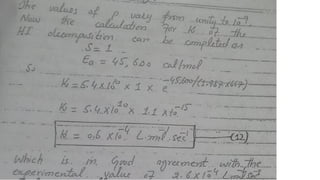 The values of P vary from unity to 10⁻⁹.
Now the calculation for K of the
HI decomposition can be completed as
S = 1
Ea = 45,600 cal/mol
So
K = 5.4 x 10¹⁰ x 1 x e^-45600/(1.987x667)
K = 5.4 x 10¹⁰ x 1.1 x 10⁻¹⁵
K = 0.6 x 10⁻⁴ L. mol⁻¹ sec⁻¹ (12)
Which is in Good agreement with the
experimental value of 2.6 x 10⁻⁴